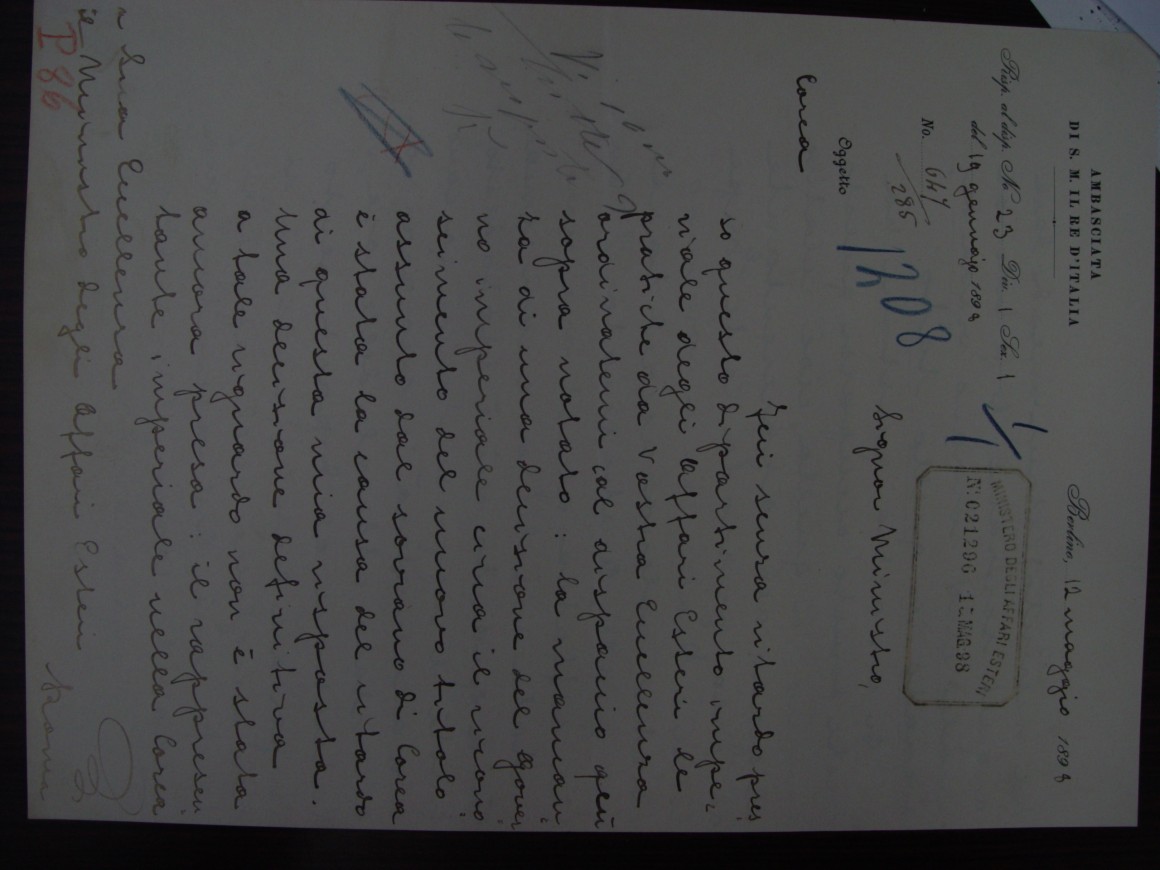 AMBASCIATA
DI S. M. IL RE D'ITALIA
Berlino, 12 maggio 1898
Risp. al disp. No 23 Div. 1 Sez. 1
del 19 gennajo 1898
No. 647
285
1208
MINISTERO DEGLI AFFARI ESTERI
No. 021296 15 MAG. 98
Oggetto
Corea
Signor Ministro,
Feci senza ritardo pres
so questo dipartimento impe
riale degli Affari Esteri le
pratiche da Vostra Eccellenza
ordinatemi col dispaccio qui
sopra notato: la mancan
za di una decisione del gover
no imperiale circa il ricono
scimento del nuovo titolo
assunto dal sovrano di Corea
è stata la causa del ritardo
di questa mia risposta.
Una decisione definitiva
a tale riguardo non è stata
ancora presa: il rappresen
tante imperiale nella Corea
a Sua Eccellenza
il Ministro degli Affari Esteri
P 86